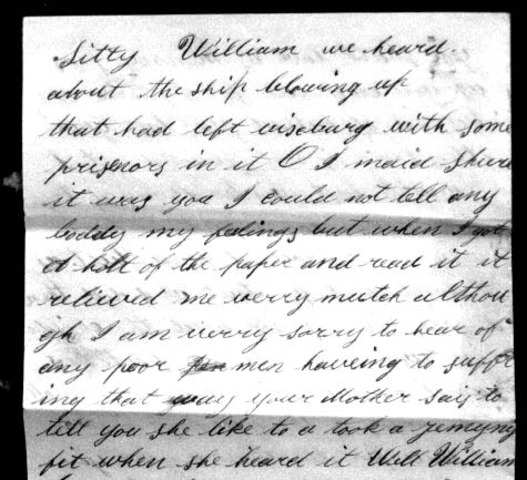 Sitty William we heard
about the ship blowing up
that had left viseburg with some
prisenors in it O I maid shure
it was you I could not tell any
boddy my feelings but when I got
a holt of the paper and read it it
relieved me verry mutch althou
gh I am verry sorry to hear of
any poor men haveing to suff
ing that way your Mother says to
tell you she like to a took a
fit when she heard it Well William